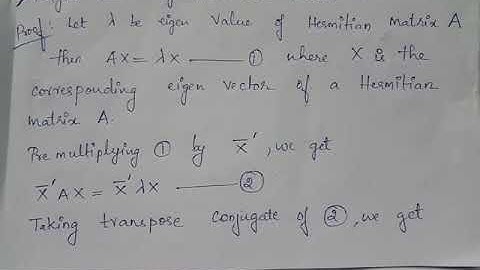 Proof: Let λ be eigen value of Hermitian Matrix A
then AX = λX —— ① where X is the
corresponding eigen vector of a Hermitian
matrix A.
Pre multiplying ① by X̅′, we get
X̅′AX = X̅′λX —— ②
Taking transpose conjugate of ②, we get